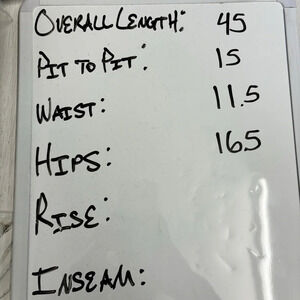 OVERALL LENGTH: 45
PIT TO PIT: 15
WAIST: 11.5
HIPS: 16.5
RISE:
INSEAM: